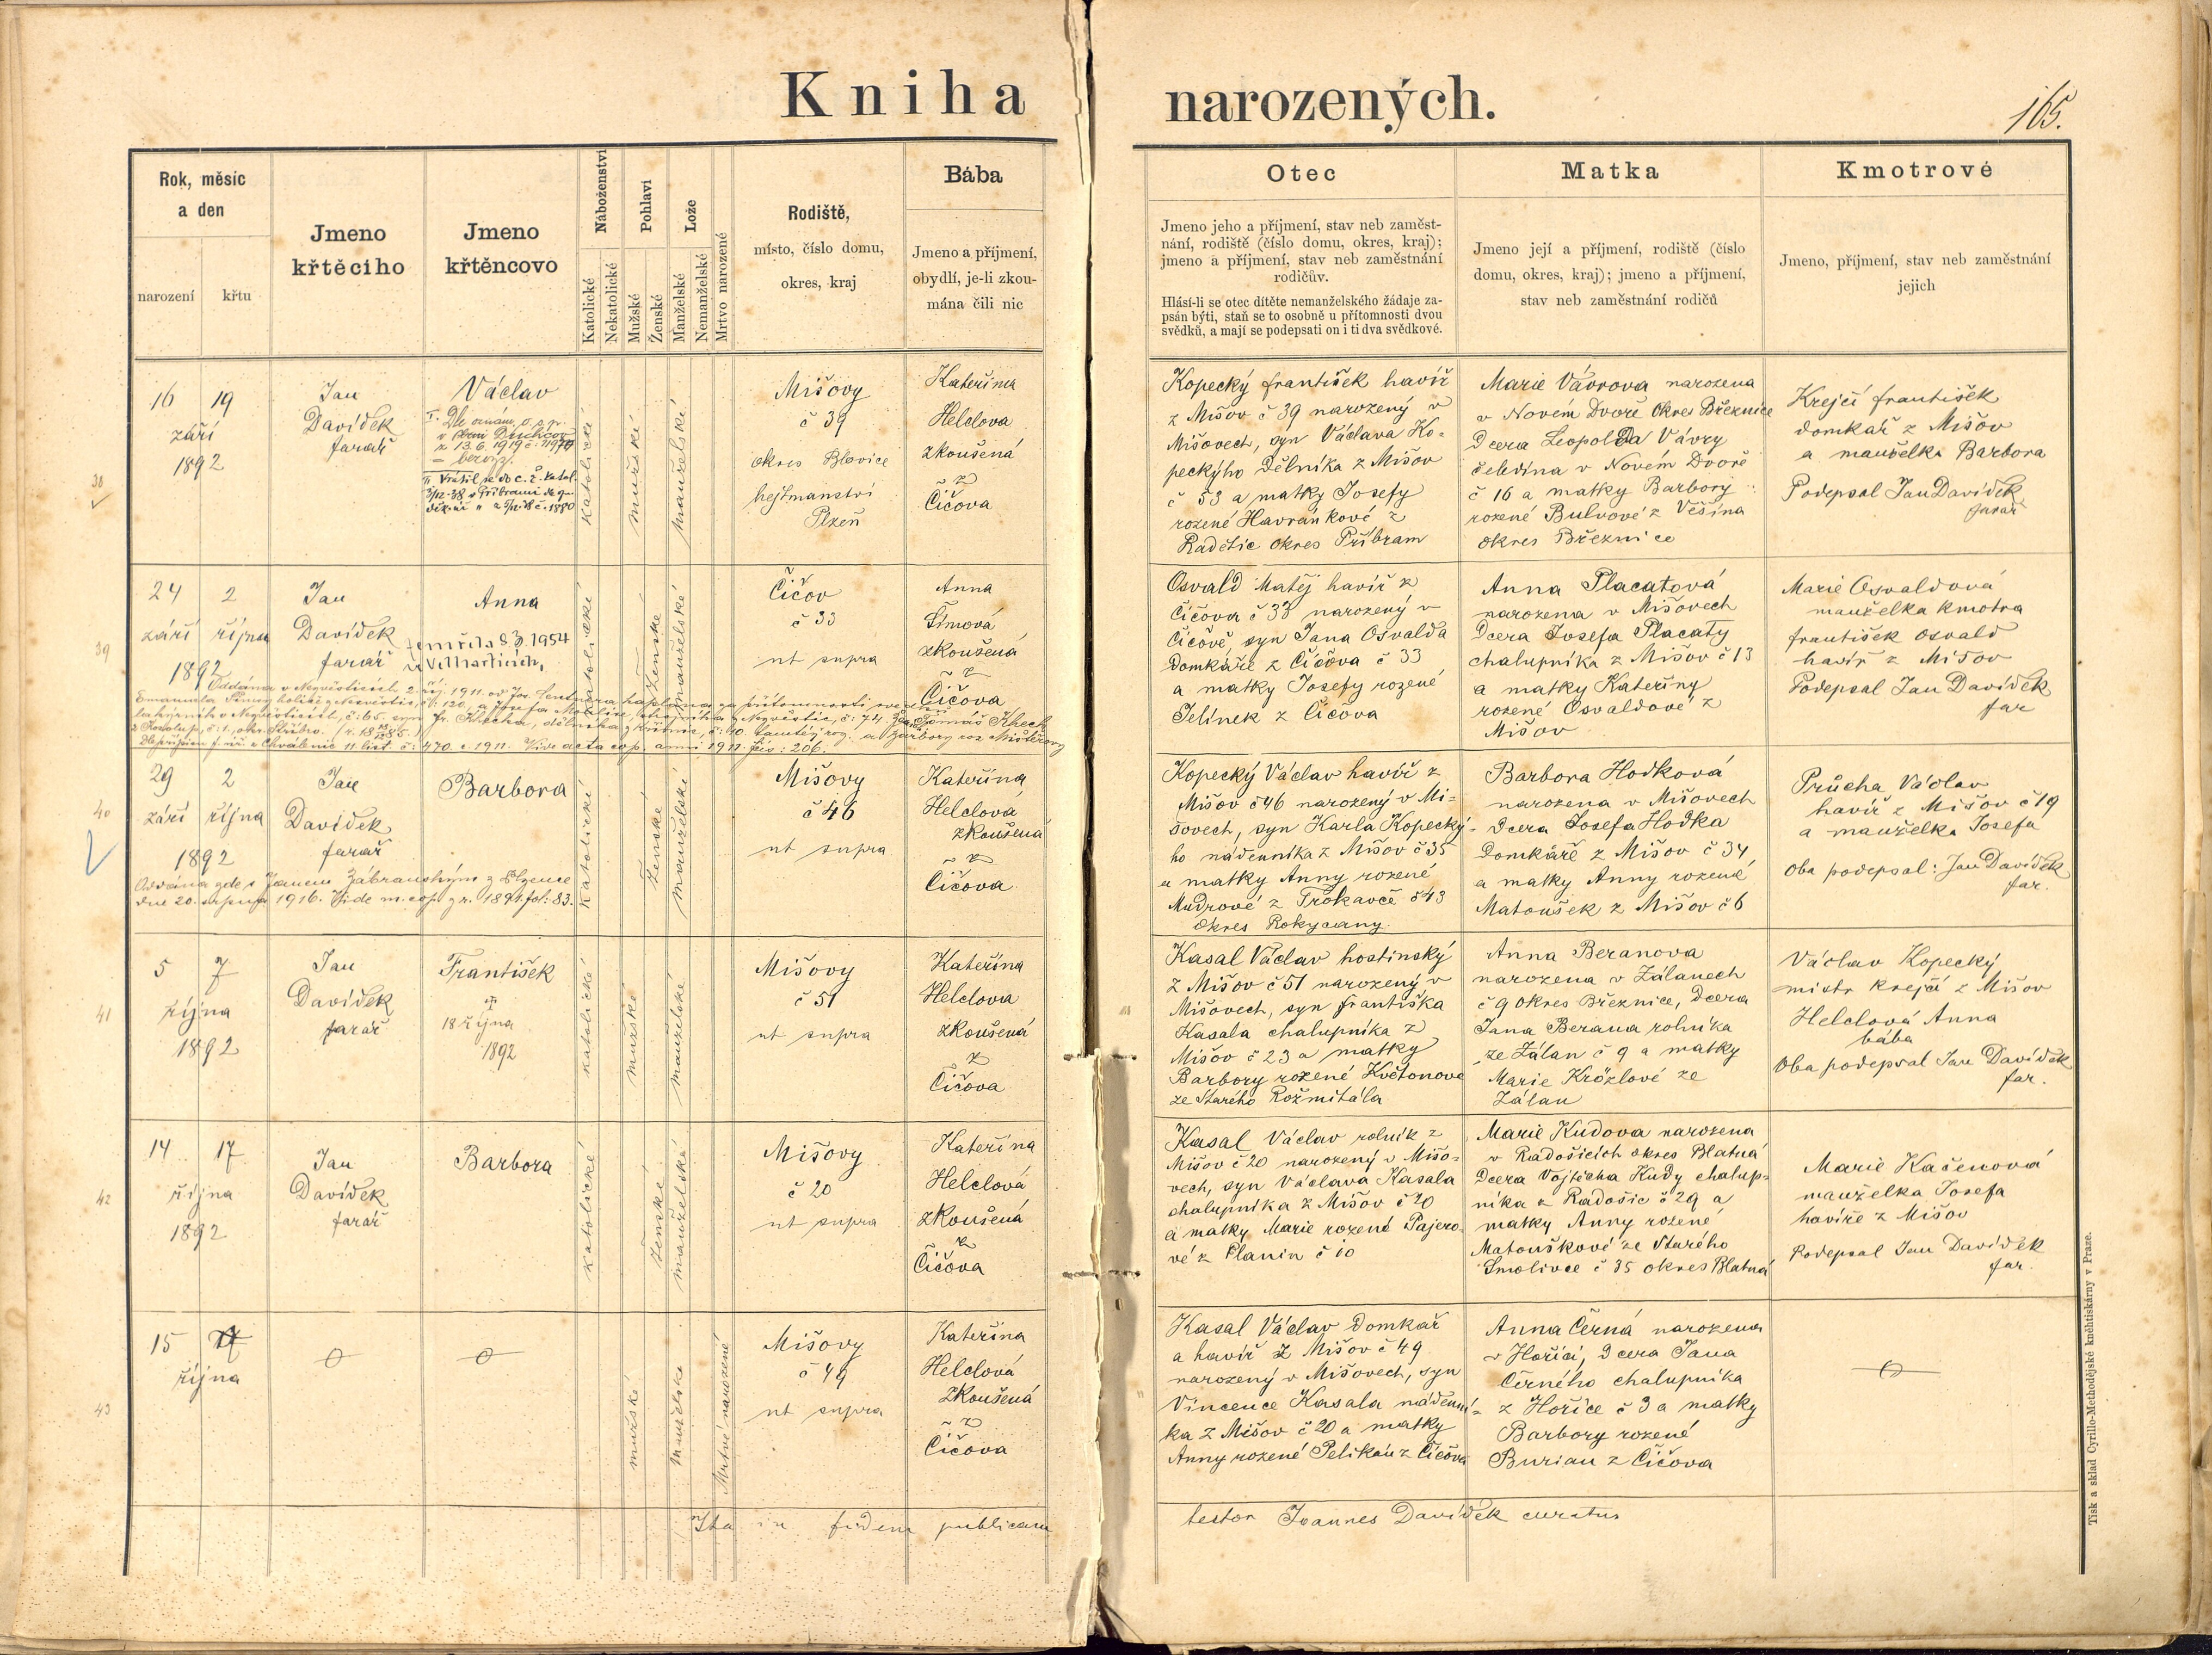 Kniha narozených.
165.
Rok, měsíc
a den
narození
křtu
Jmeno
křtěcího
Jmeno
křtěncovo
Náboženství
Katolické
Nekatolické
Pohlaví
Mužské
Ženské
Lože
Manželské
Nemanželské
Mrtvo narozené
Rodiště,
místo, číslo domu,
okres, kraj
Bába
Jmeno a příjmení,
obydlí, je-li zkou-
mána čili nic
Otec
Jmeno jeho a příjmení, stav neb zaměst-
nání, rodiště (číslo domu, okres, kraj);
jmeno a příjmení, stav neb zaměstnání
rodičův.
Hlásí-li se otec dítěte nemanželského žádaje za-
psán býti, staň se to osobně u přítomnosti dvou
svědků, a mají se podepsati on i ti dva svědkové.
Matka
Jmeno její a příjmení, rodiště (číslo
domu, okres, kraj); jmeno a příjmení,
stav neb zaměstnání rodičů
Kmotrové
Jmeno, příjmení, stav neb zaměstnání
jejich
38
16 19
září
1892
Jan
Davídek
farář
Václav
katolické
mužské
manželské
Mišovy
č 39
okres Blovice
hejtmanství
Plzeň
Kateřina
Helclova
zkoušená
z
Čičova
Kopecký František havíř
z Mišov č 39 narozený v
Mišovech, syn Václava Ko-
peckýho dělníka z Mišov
č 53 a matky Josefy
rozené Havránkové z
Radětic okres Příbram
Marie Vávrova narozena
v Novém Dvoře okres Březnice
dcera Leopolda Vávry
čeledína v Novém Dvoře
č 16 a matky Barbory
rozené Bulvové z Věšína
okres Březnice
Krejčí František
domkář z Mišov
a manželka Barbora
Podepsal Jan Davídek
farář
39
24 2
září října
1892
Jan
Davídek
farář
Anna
zemřela 8.3.1954
katolické
ženské
manželské
Čičov
č 33
ut supra
Anna
Šimová
zkoušená
z
Čičova
Osvald Matěj havíř z
Čičova č 33 narozený v
Čičově, syn Jana Osvalda
domkáře z Čičova č 33
a matky Josefy rozené
Jelínek z Čičova
Anna Placatová
narozena v Mišovech
dcera Josefa Placaty
chalupníka z Mišov č 13
a matky Kateřiny
rozené Osvaldové z
Mišov
Marie Osvaldová
manželka kmotra
František Osvald
havíř z Mišov
Podepsal Jan Davídek
far
40
29 2
září října
1892
Jan
Davídek
farář
Barbora
Oddána zde s Janem Zábranským z Plzence
dne 20. srpna 1916. Vide m. cop. z r. 1891. fol: 83.
katolické
ženské
manželské
Mišovy
č 46
ut supra
Kateřina
Helclová
zkoušená
z
Čičova
Kopecký Václav havíř z
Mišov č 46 narozený v Mi-
šovech, syn Karla Kopecký-
ho nádenníka z Mišov č 35
a matky Anny rozené
Mudrové z Trokavče č 43
okres Rokycany.
Barbora Hodková
narozena v Mišovech
dcera Josefa Hodka
domkáře z Mišov č 34
a matky Anny rozené
Matoušek z Mišov č 6
Průcha Václav
havíř z Mišov č 19
a manželka Josefa
Oba podepsal: Jan Davídek
far.
41
5 7
října
1892
Jan
Davídek
farář
František
18 října
1892
katolické
mužské
manželské
Mišovy
č 51
ut supra
Kateřina
Helclova
zkoušená
z
Čičova
Kasal Václav hostinský
z Mišov č 51 narozený v
Mišovech, syn Františka
Kasala chalupníka z
Mišov č 23 a matky
Barbory rozené Květonové
ze Starého Rožmitála
Anna Beranova
narozena v Zálanech
č 9 okres Březnice, dcera
Jana Berana rolníka
ze Zálan č 9 a matky
Marie Krözlové ze
Zálan
Václav Kopecký
mistr krejčí z Mišov
Helclová Anna
bába
Oba podepsal Jan Davídek
far.
42
14 17
října
1892
Jan
Davídek
farář
Barbora
katolické
ženské
manželské
Mišovy
č 20
ut supra
Kateřina
Helclová
zkoušená
z
Čičova
Kasal Václav rolník z
Mišov č 20 narozený v Mišo-
vech, syn Václava Kasala
chalupníka z Mišov č 20
a matky Marie rozené Pajero-
vé z Planin č 10
Marie Kudova narozena
v Radošicích okres Blatná
dcera Vojtěcha Kudy chalup-
níka z Radošic č 29 a
matky Anny rozené
Matouškové ze Starého
Smolivce č 35 okres Blatná
Marie Kačenová
manželka Josefa
havíře z Mišov
Podepsal Jan Davídek
far.
43
15
října
mužské
manželské
Mrtvé narozené
Mišovy
č 49
ut supra
Kateřina
Helclová
zkoušená
z
Čičova
Kasal Václav domkář
a havíř z Mišov č 49
narozený v Mišovech, syn
Vincence Kasala nádenní-
ka z Mišov č 20 a matky
Anny rozené Pelikán z Čičova
Anna Černá narozena
v Hořici, dcera Jana
Černého chalupníka
z Hořice č 3 a matky
Barbory rozené
Burian z Čičova
Ita in fidem publicam
testor Joannes Davídek curatus
Tisk a sklad Cyrillo-Methodějské kněhtiskárny v Praze.